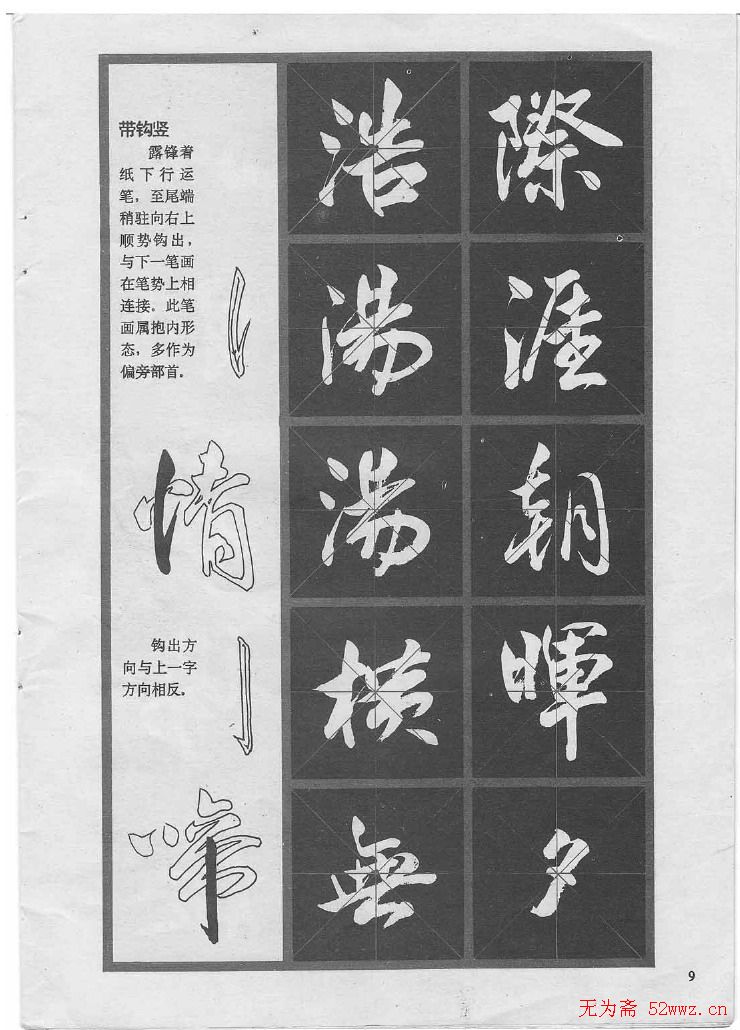 带钩竖
露锋着
纸下行运
笔，至尾端
稍驻向右上
顺势钩出，
与下一笔画
在笔势上相
连接。此笔
画属抱内形
态，多作为
偏旁部首。
情
钩出方
向与上一字
方向相反。
啼
浩湯湯横無
際涯朝暉夕
9
无为斋 52wwz.cn